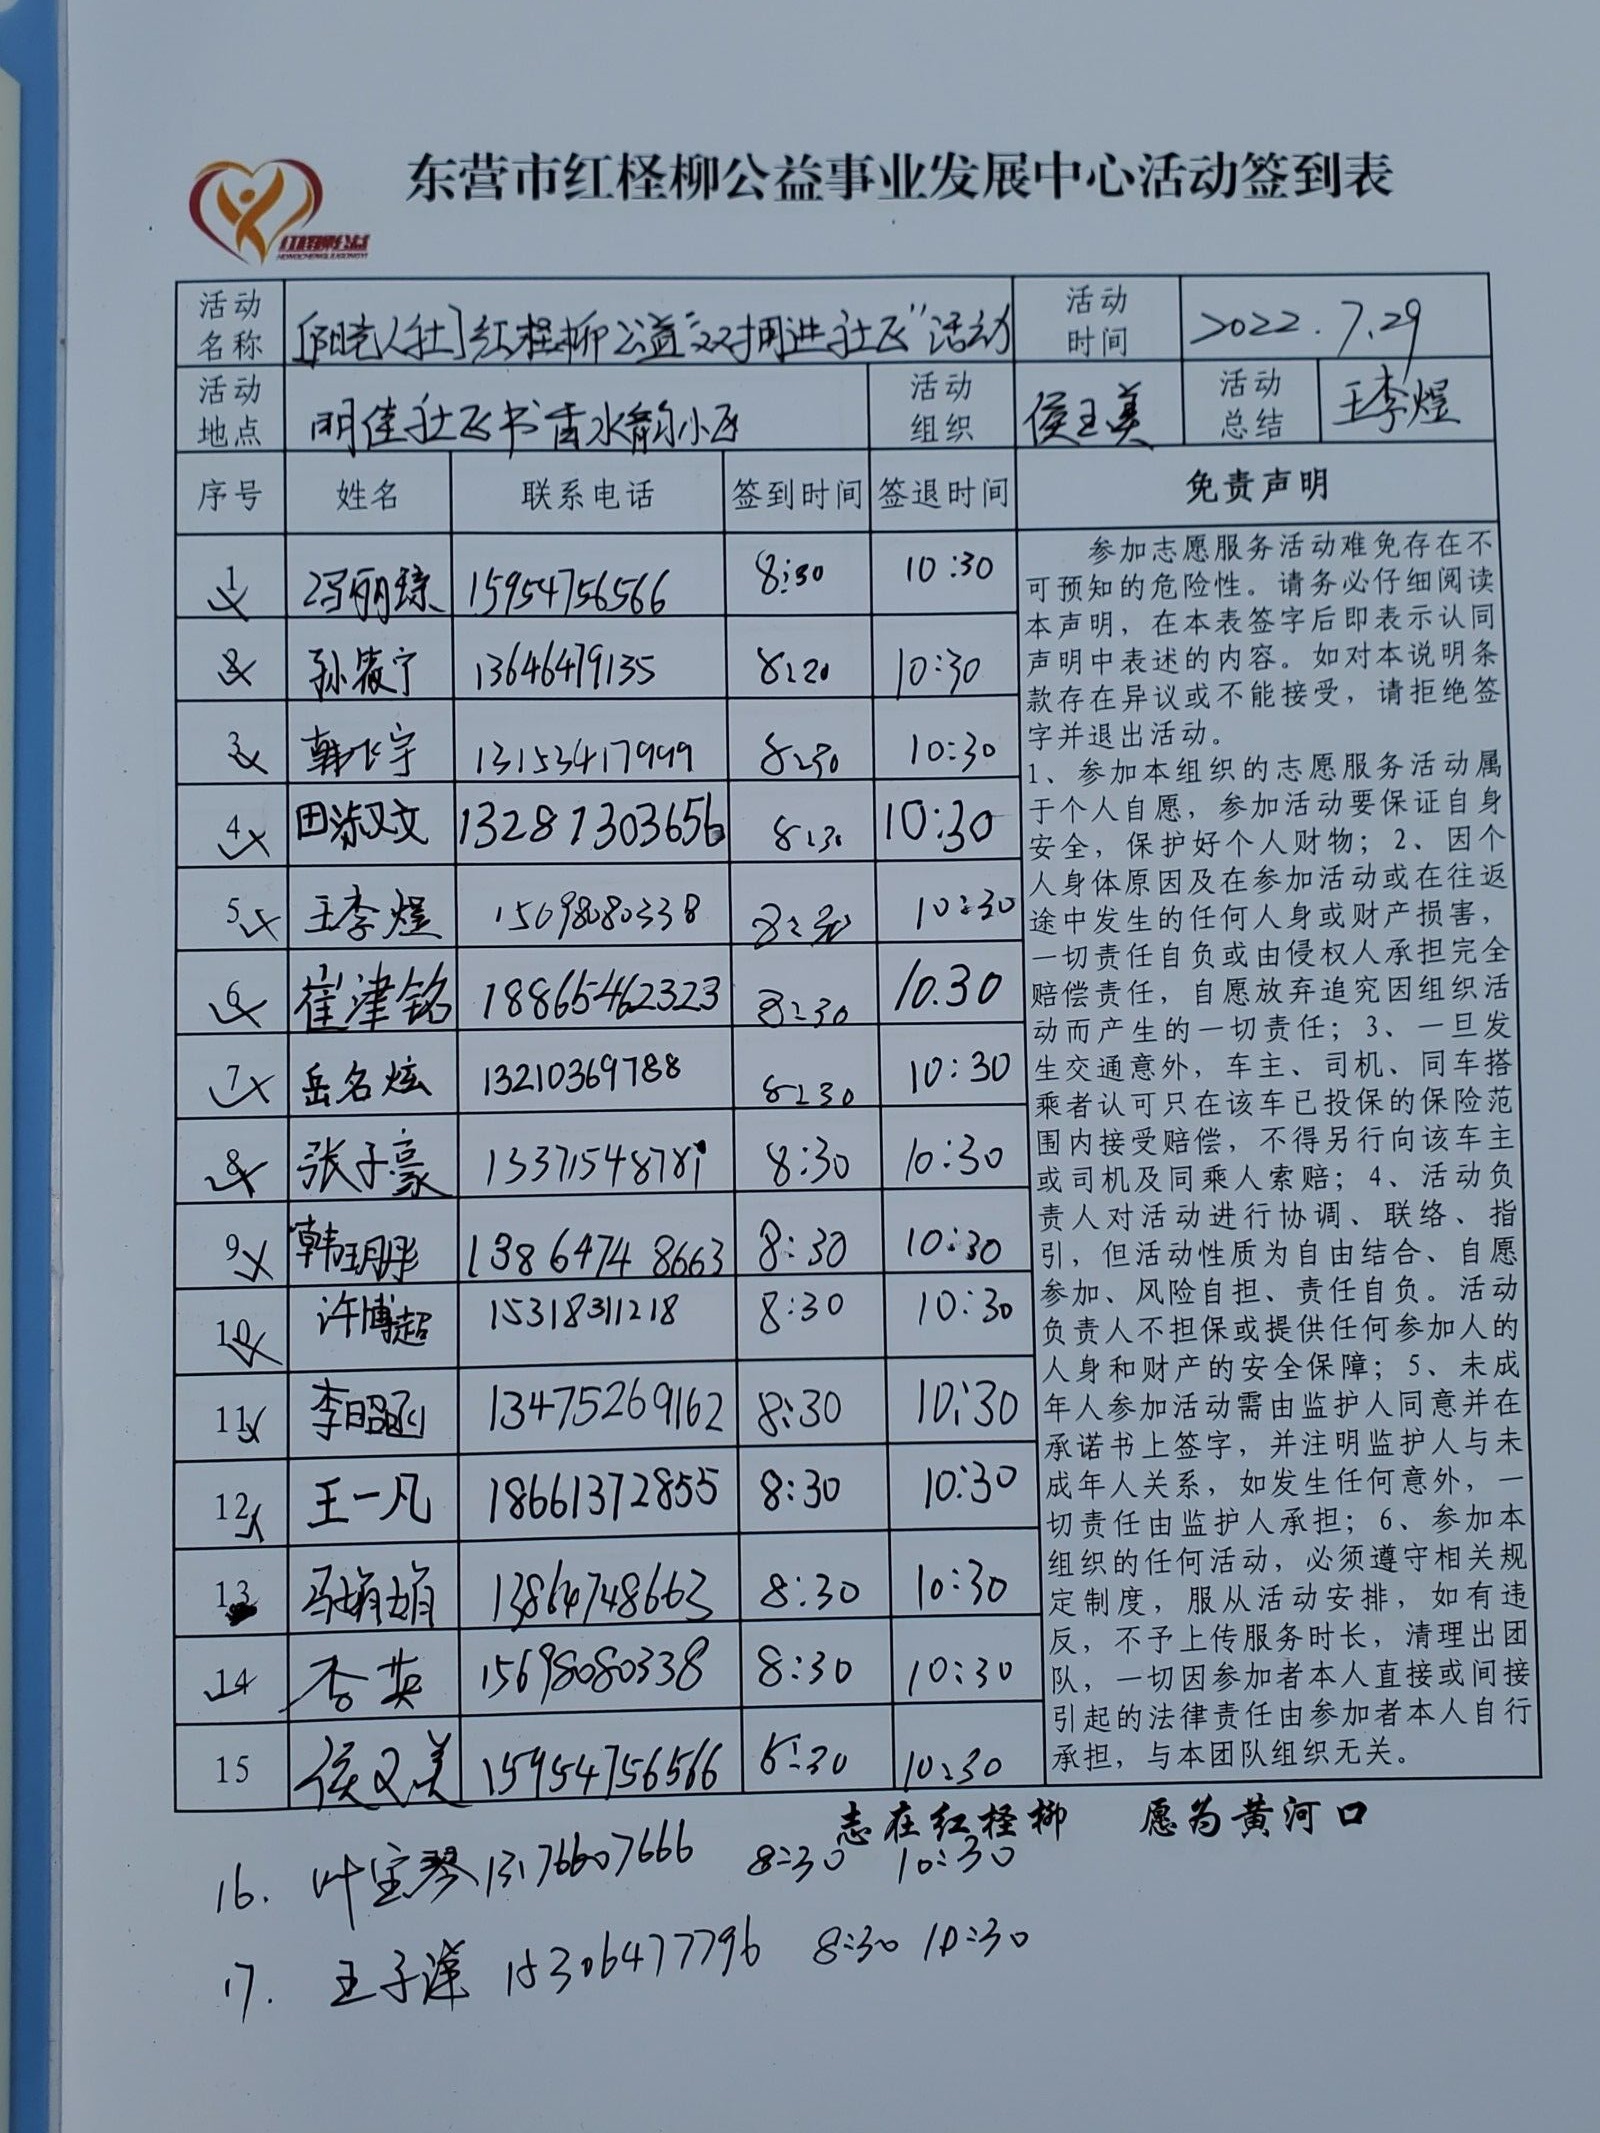 东营市红柽柳公益事业发展中心活动签到表
红柽柳公益
活动名称 [阳光人社]红柽柳公益"双拥进社区"活动 活动时间 2022.7.29
活动地点 明佳社区书香水韵小区 活动组织 侯玉美 活动总结 王李煜
序号 姓名 联系电话 签到时间 签退时间 免责声明
1 冯丽琼 15954756566 8:30 10:30
2 孙筱宁 13646479135 8:20 10:30
3 韩飞宇 13153417999 8:30 10:30
4 田淑文 13287303656 8:30 10:30
5 王李煜 15698080338 8:30 10:30
6 崔津铭 18865462323 8:30 10.30
7 岳名炫 13210369788 8:30 10:30
8 张子豪 13371548781 8:30 10:30
9 韩玥彤 13864748663 8:30 10:30
10 许博超 15318311218 8:30 10:30
11 李昭函 13475269162 8:30 10:30
12 王一凡 18661372855 8:30 10:30
13 马娟娟 13864748663 8:30 10:30
14 李英 15698080338 8:30 10:30
15 侯又美 15954756566 8:30 10:30
参加志愿服务活动难免存在不
可预知的危险性。请务必仔细阅读
本声明，在本表签字后即表示认同
声明中表述的内容。如对本说明条
款存在异议或不能接受，请拒绝签
字并退出活动。
1、参加本组织的志愿服务活动属
于个人自愿，参加活动要保证自身
安全，保护好个人财物；2、因个
人身体原因及在参加活动或在往返
途中发生的任何人身或财产损害，
一切责任自负或由侵权人承担完全
赔偿责任，自愿放弃追究因组织活
动而产生的一切责任；3、一旦发
生交通意外，车主、司机、同车搭
乘者认可只在该车已投保的保险范
围内接受赔偿，不得另行向该车主
或司机及同乘人索赔；4、活动负
责人对活动进行协调、联络、指
引，但活动性质为自由结合、自愿
参加、风险自担、责任自负。活动
负责人不担保或提供任何参加人的
人身和财产的安全保障；5、未成
年人参加活动需由监护人同意并在
承诺书上签字，并注明监护人与未
成年人关系，如发生任何意外，一
切责任由监护人承担；6、参加本
组织的任何活动，必须遵守相关规
定制度，服从活动安排，如有违
反，不予上传服务时长，清理出团
队，一切因参加者本人直接或间接
引起的法律责任由参加者本人自行
承担，与本团队组织无关。
志在红柽柳 愿为黄河口
16. 叶宝琴 13176607666 8:30 10:30
17. 王子洋 15306477796 8:30 10:30